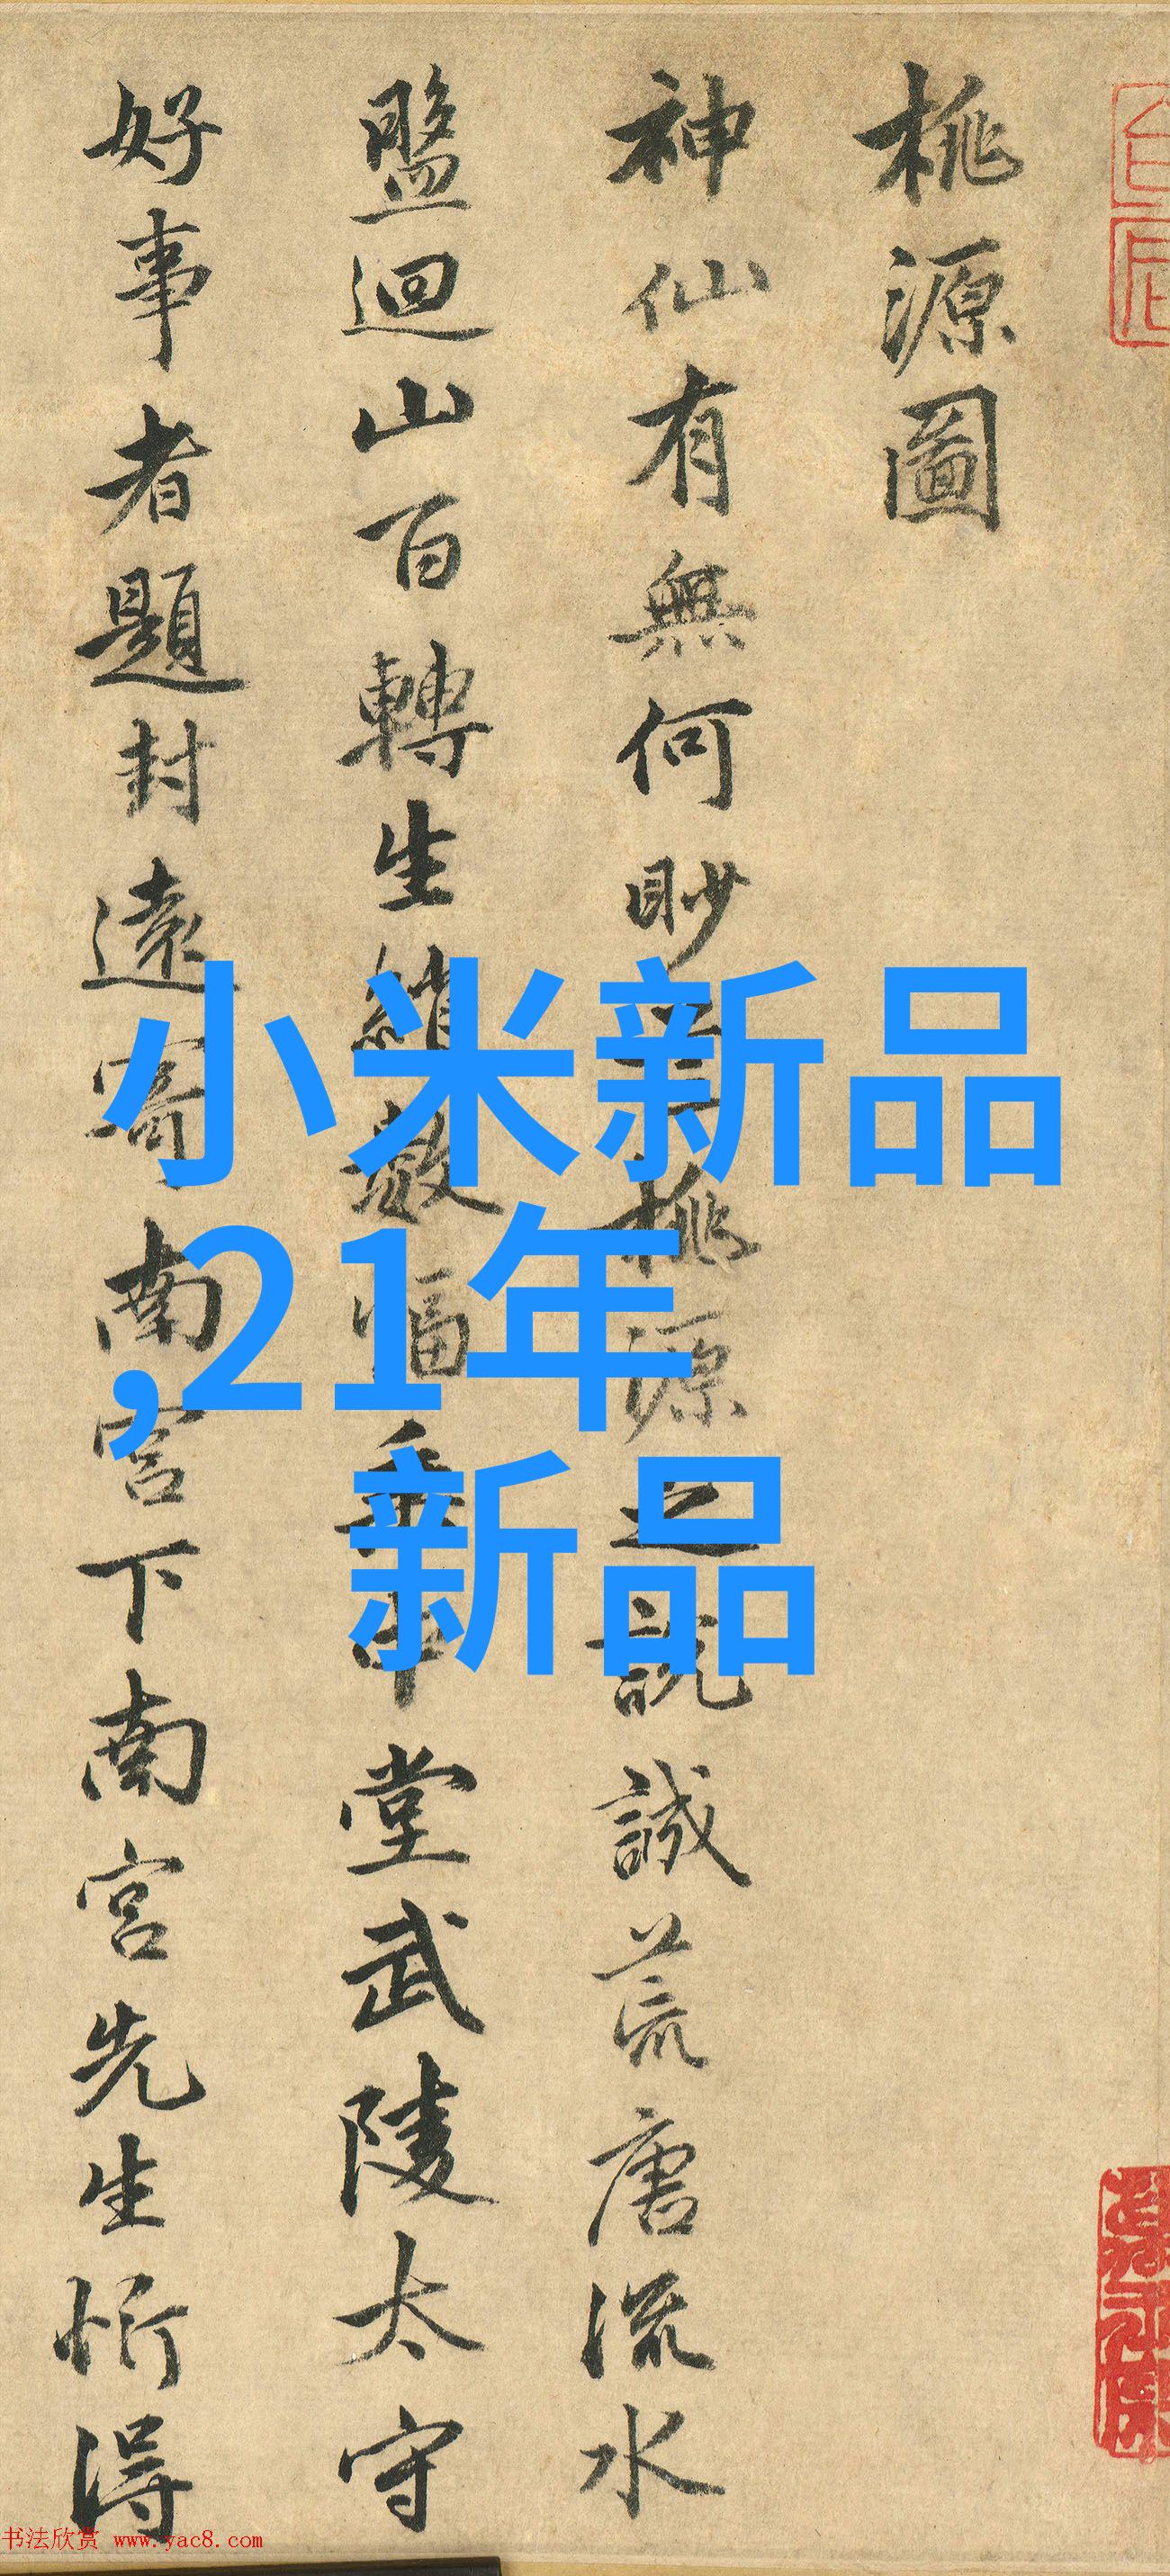 桃源圖
神仙有無何眇芒桃源之説誠荒唐流水
盤迴山百轉生綃數幅垂中堂武陵太守
好事者題封遠寄南宮下南宮先生忻得
小米新品
,21年
新品
书法欣赏 www.yac8.com